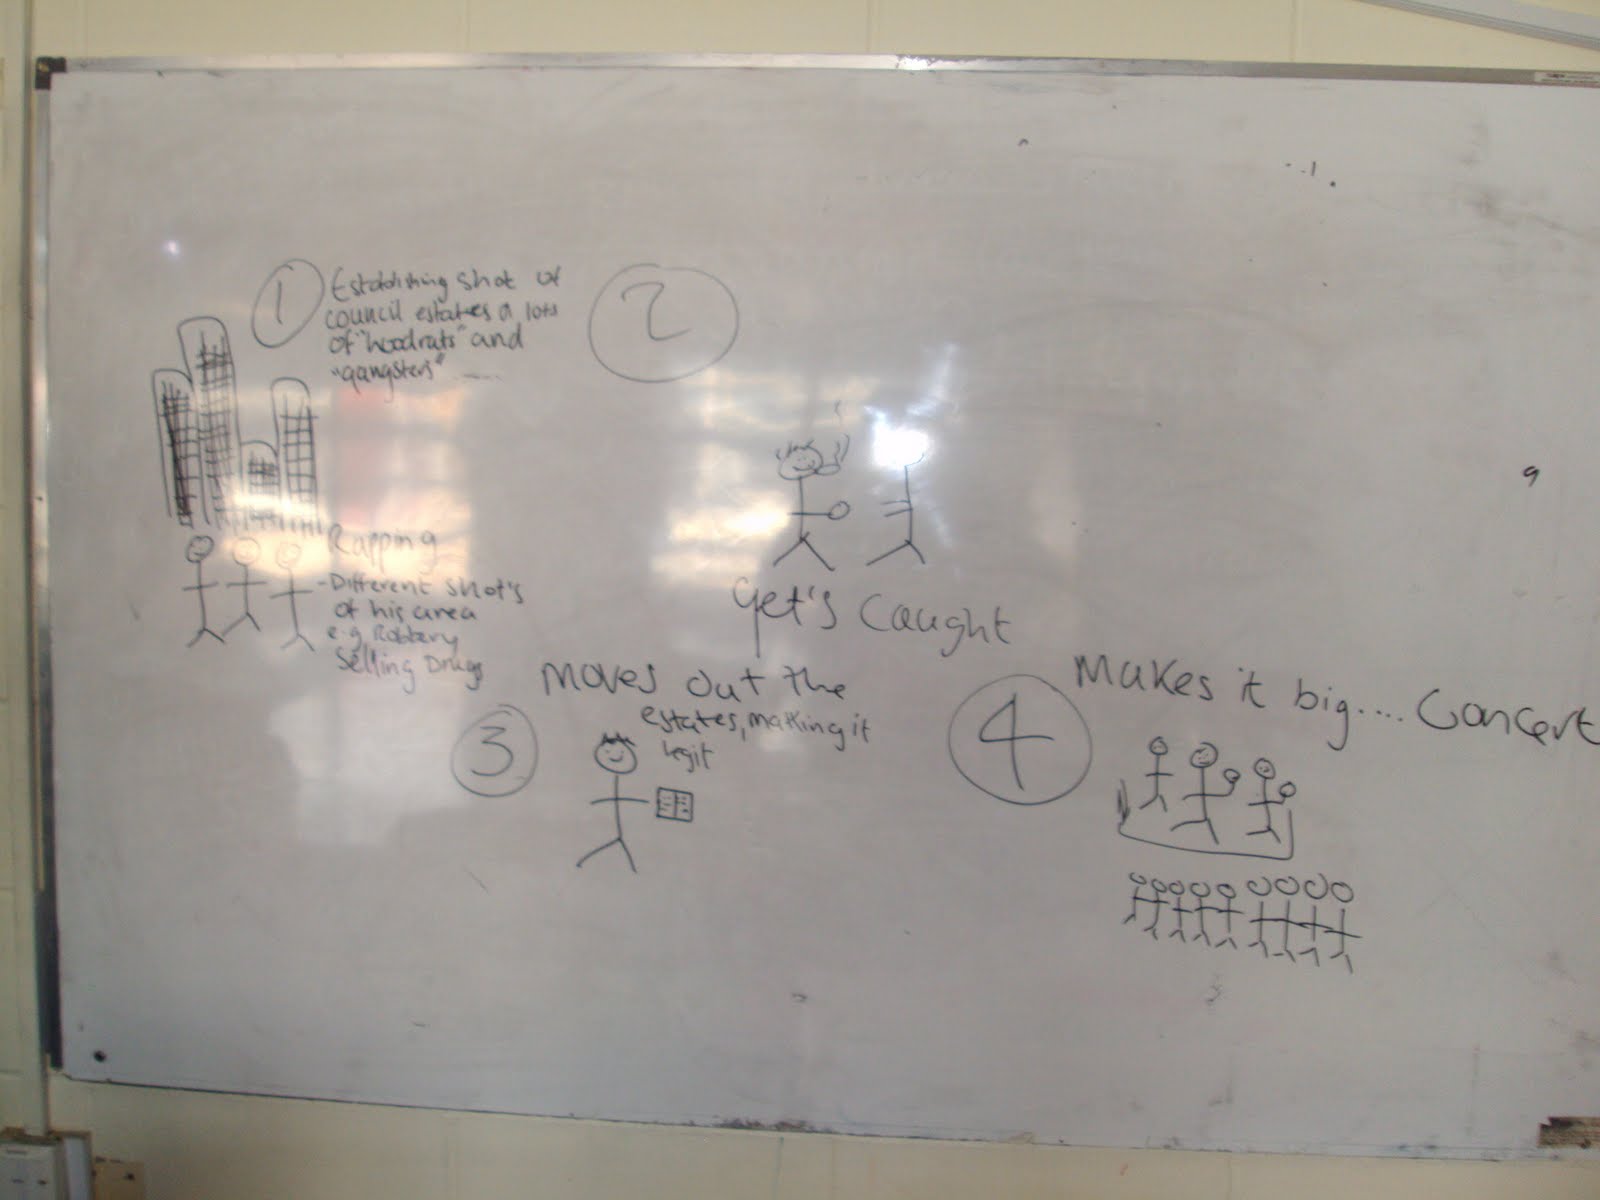 1
Establishing shot of
council estates a lots
of "hoodrats" and
"gangsters" .....
Rapping
- Different shot's
of his area
e.g Robbery
Selling Drugs
2
get's caught
3
moves out the
estates, making it
legit
4
makes it big.... Concert